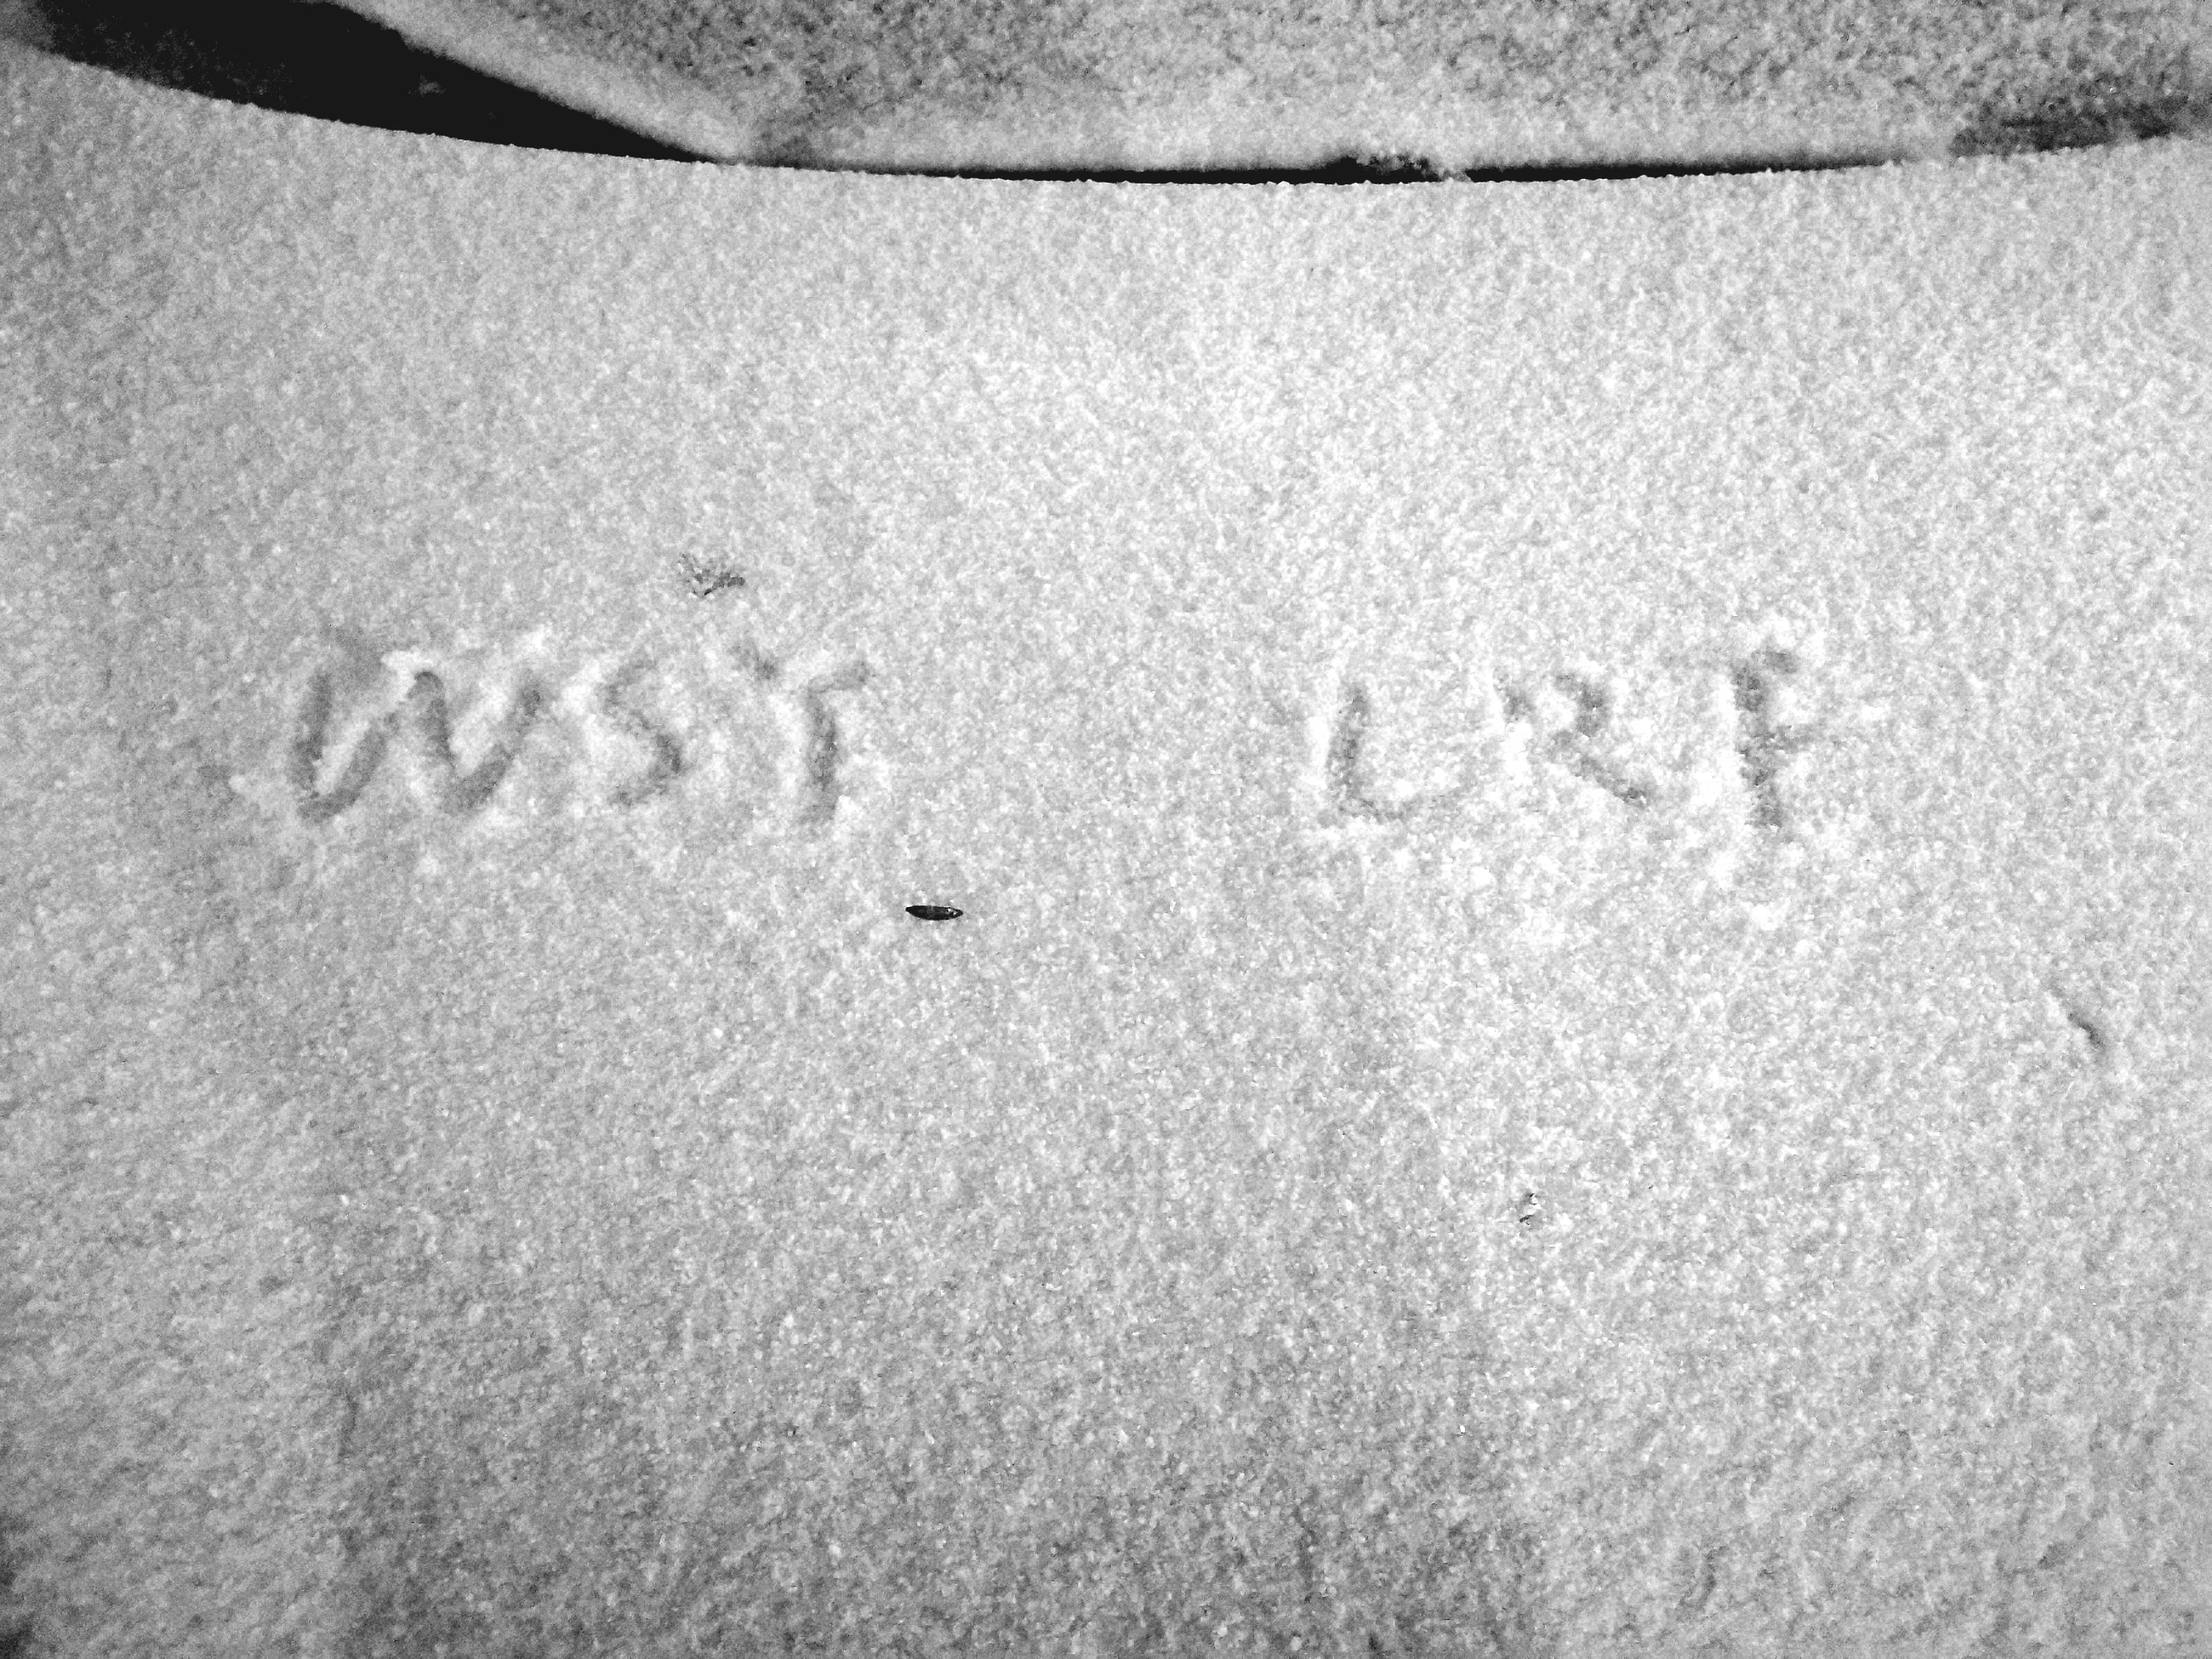 WSY LRF